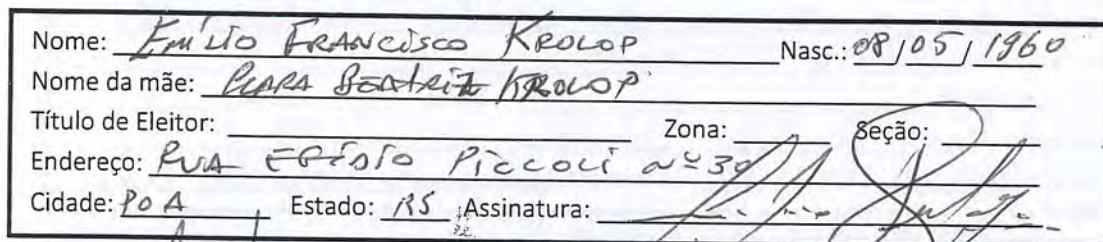 Nome: Emílio Francisco Krolop Nasc.: 08/05/1960
Nome da mãe: Clara Beatriz Krolop
Título de Eleitor: Zona: Seção:
Endereço: Rua Egisio Piccoli nº
Cidade: POA Estado: RS Assinatura: